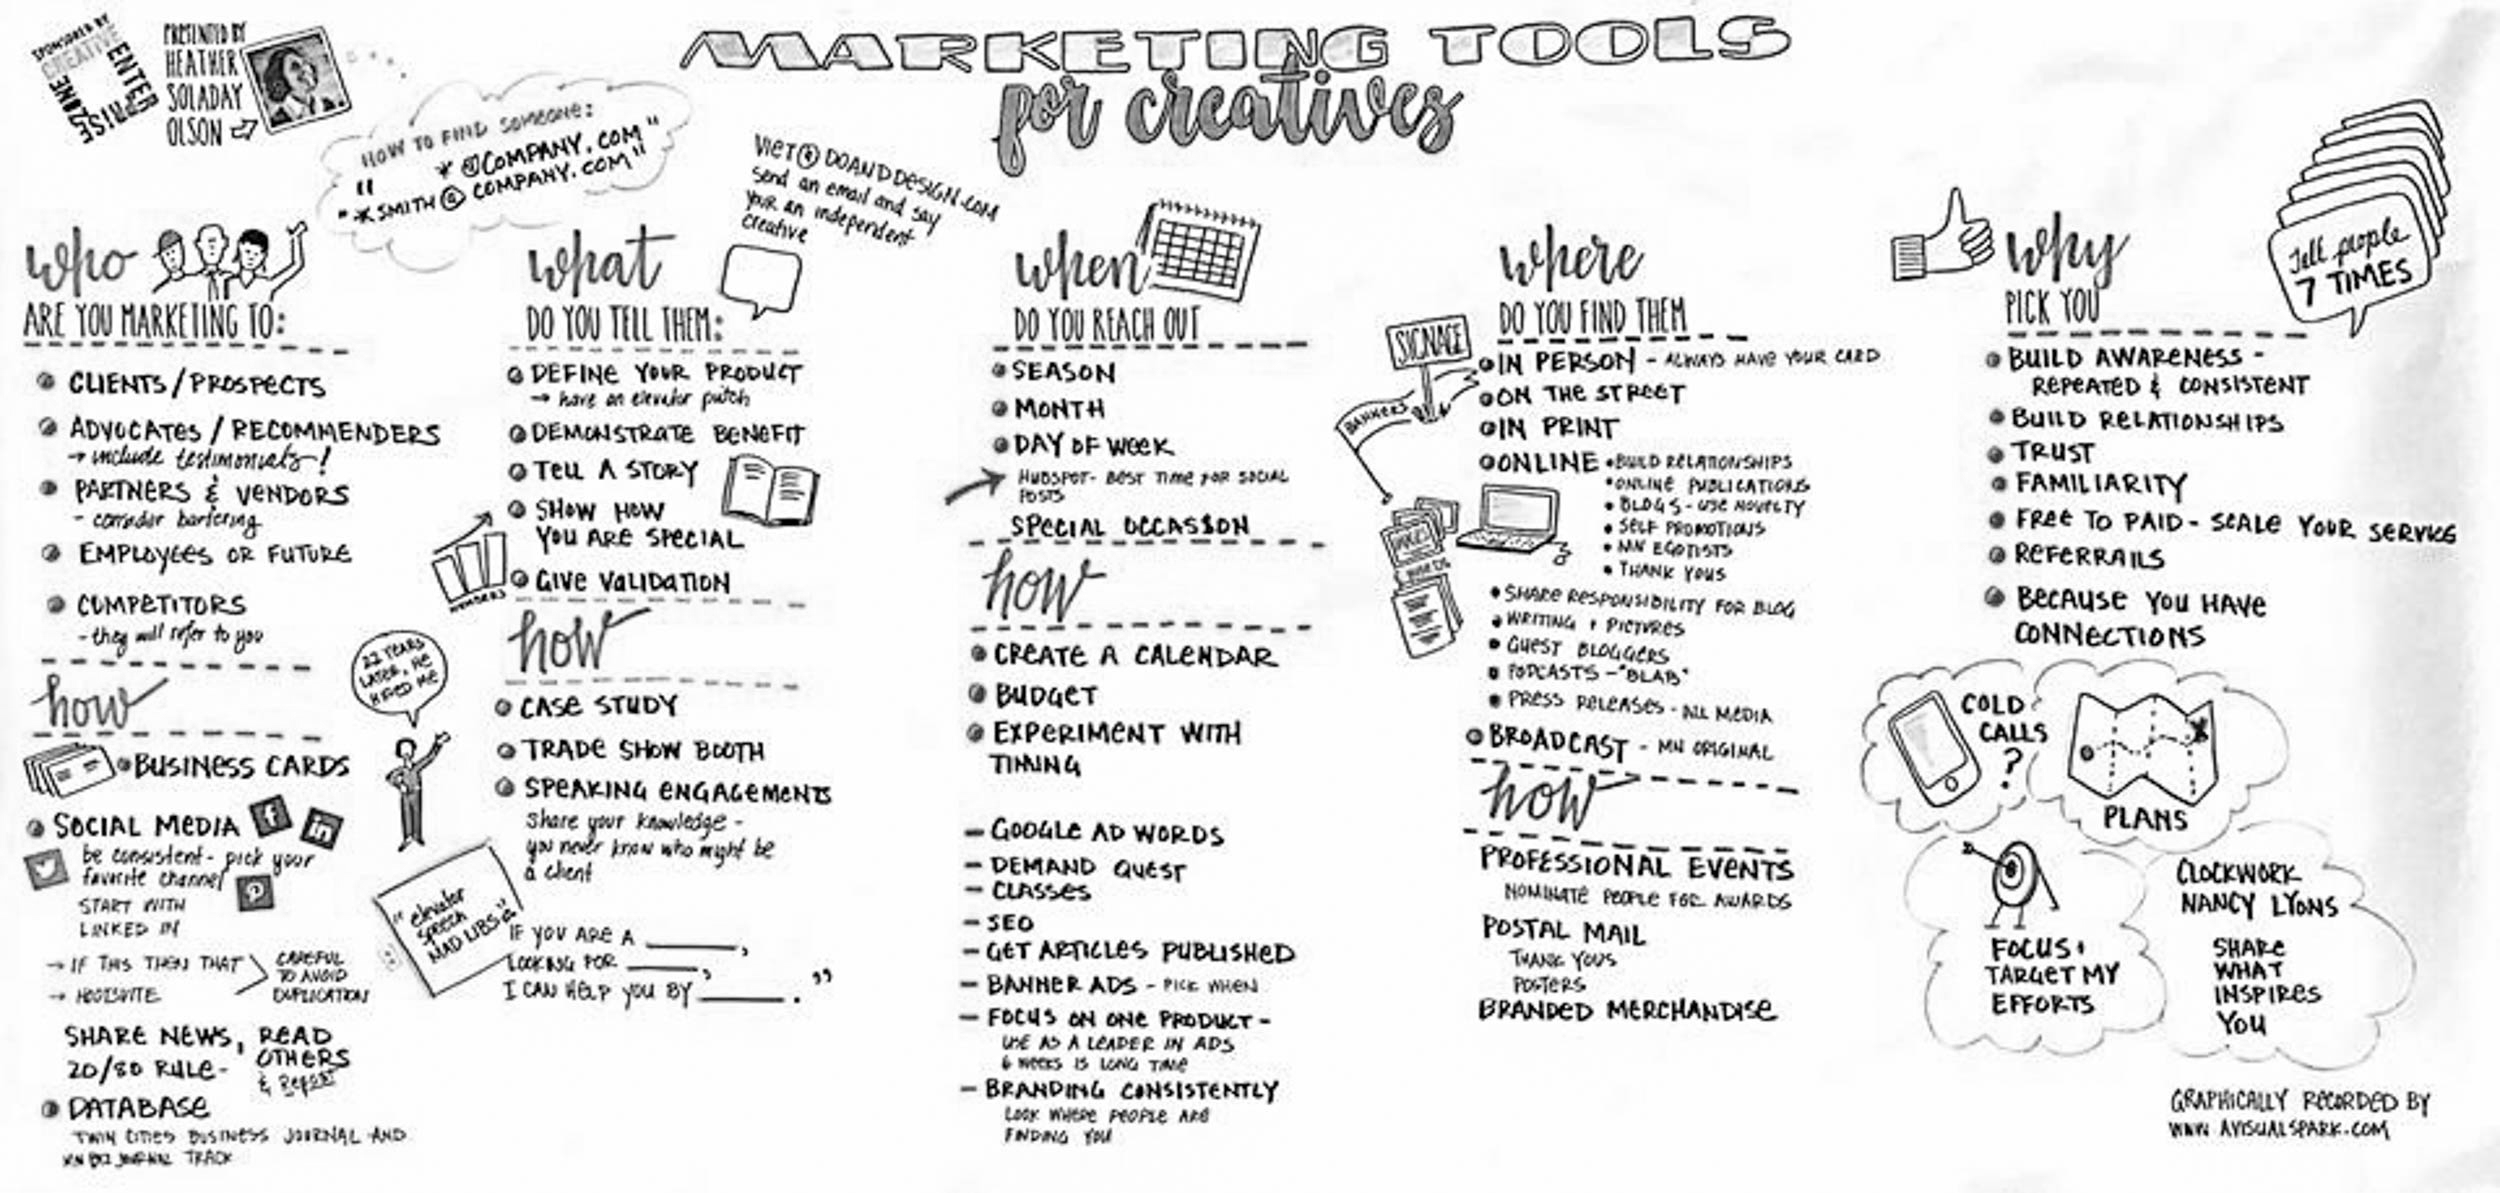 MARKETING TOOLS
for creatives
SPONSORED BY
CREATIVE
ENTER
PRISE
ZONE
PRESENTED BY
HEATHER
SOLADAY
OLSON
HOW TO FIND SOMEONE:
" * @COMPANY.COM"
"*SMITH@COMPANY.COM"
VIET@DOANDDESIGN.COM
Send an email and say
your an independent
creative
who
ARE YOU MARKETING TO:
CLIENTS/PROSPECTS
ADVOCATES/RECOMMENDERS
→ include testimonials!
PARTNERS & VENDORS
- consider bartering
EMPLOYEES OR FUTURE
COMPETITORS
- they will refer to you
how
BUSINESS CARDS
SOCIAL MEDIA
f
in
be consistent - pick your
favorite channel
START WITH
LINKED IN
→ IF THIS THEN THAT
→ HOOTSUITE
CAREFUL
TO AVOID
DUPLICATION
SHARE NEWS,
20/80 RULE -
READ
OTHERS
& Report
DATABASE
TWIN CITIES BUSINESS JOURNAL AND
JOURNAL TRACK
22 YEARS
LATER, HE
HIRED ME
what
DO YOU TELL THEM:
DEFINE YOUR PRODUCT
→ have an elevator pitch
DEMONSTRATE BENEFIT
TELL A STORY
SHOW HOW
YOU ARE SPECIAL
GIVE VALIDATION
NUMBERS
how
CASE STUDY
TRADE SHOW BOOTH
SPEAKING ENGAGEMENTS
Share your knowledge -
you never know who might be
a client
"elevator
speech
MAD LIBS"
IF YOU ARE A ______,
LOOKING FOR ______,
I CAN HELP YOU BY ______."
when
DO YOU REACH OUT
SEASON
MONTH
DAY OF WEEK
HUBSPOT - BEST TIME FOR SOCIAL
POSTS
SPECIAL OCCASSION
how
CREATE A CALENDAR
BUDGET
EXPERIMENT WITH
TIMING
- GOOGLE AD WORDS
- DEMAND QUEST
- CLASSES
- SEO
- GET ARTICLES PUBLISHED
- BANNER ADS - PICK WHEN
- FOCUS ON ONE PRODUCT -
USE AS A LEADER IN ADS
6 WEEKS IS LONG TIME
- BRANDING CONSISTENTLY
LOOK WHERE PEOPLE ARE
FINDING YOU
where
DO YOU FIND THEM
SIGNAGE
BANNERS
IN PERSON - ALWAYS HAVE YOUR CARD
ON THE STREET
IN PRINT
ONLINE
• BUILD RELATIONSHIPS
• ONLINE PUBLICATIONS
• BLOGS - USE NOVELTY
• SELF PROMOTIONS
• MN EGOTISTS
• THANK YOUS
• SHARE RESPONSIBILITY FOR BLOG
• WRITING + PICTURES
• GUEST BLOGGERS
• PODCASTS - "BLAB"
• PRESS RELEASES - ALL MEDIA
BROADCAST - MN ORIGINAL
how
PROFESSIONAL EVENTS
NOMINATE PEOPLE FOR AWARDS
POSTAL MAIL
THANK YOUS
POSTERS
BRANDED MERCHANDISE
why
PICK YOU
Tell people
7 TIMES
BUILD AWARENESS -
REPEATED & CONSISTENT
BUILD RELATIONSHIPS
TRUST
FAMILIARITY
FREE TO PAID - SCALE YOUR SERVICE
REFERRAILS
BECAUSE YOU HAVE
CONNECTIONS
COLD
CALLS
?
PLANS
FOCUS +
TARGET MY
EFFORTS
CLOCKWORK
NANCY LYONS
SHARE
WHAT
INSPIRES
YOU
GRAPHICALLY RECORDED BY
WWW.AVISUALSPARK.COM